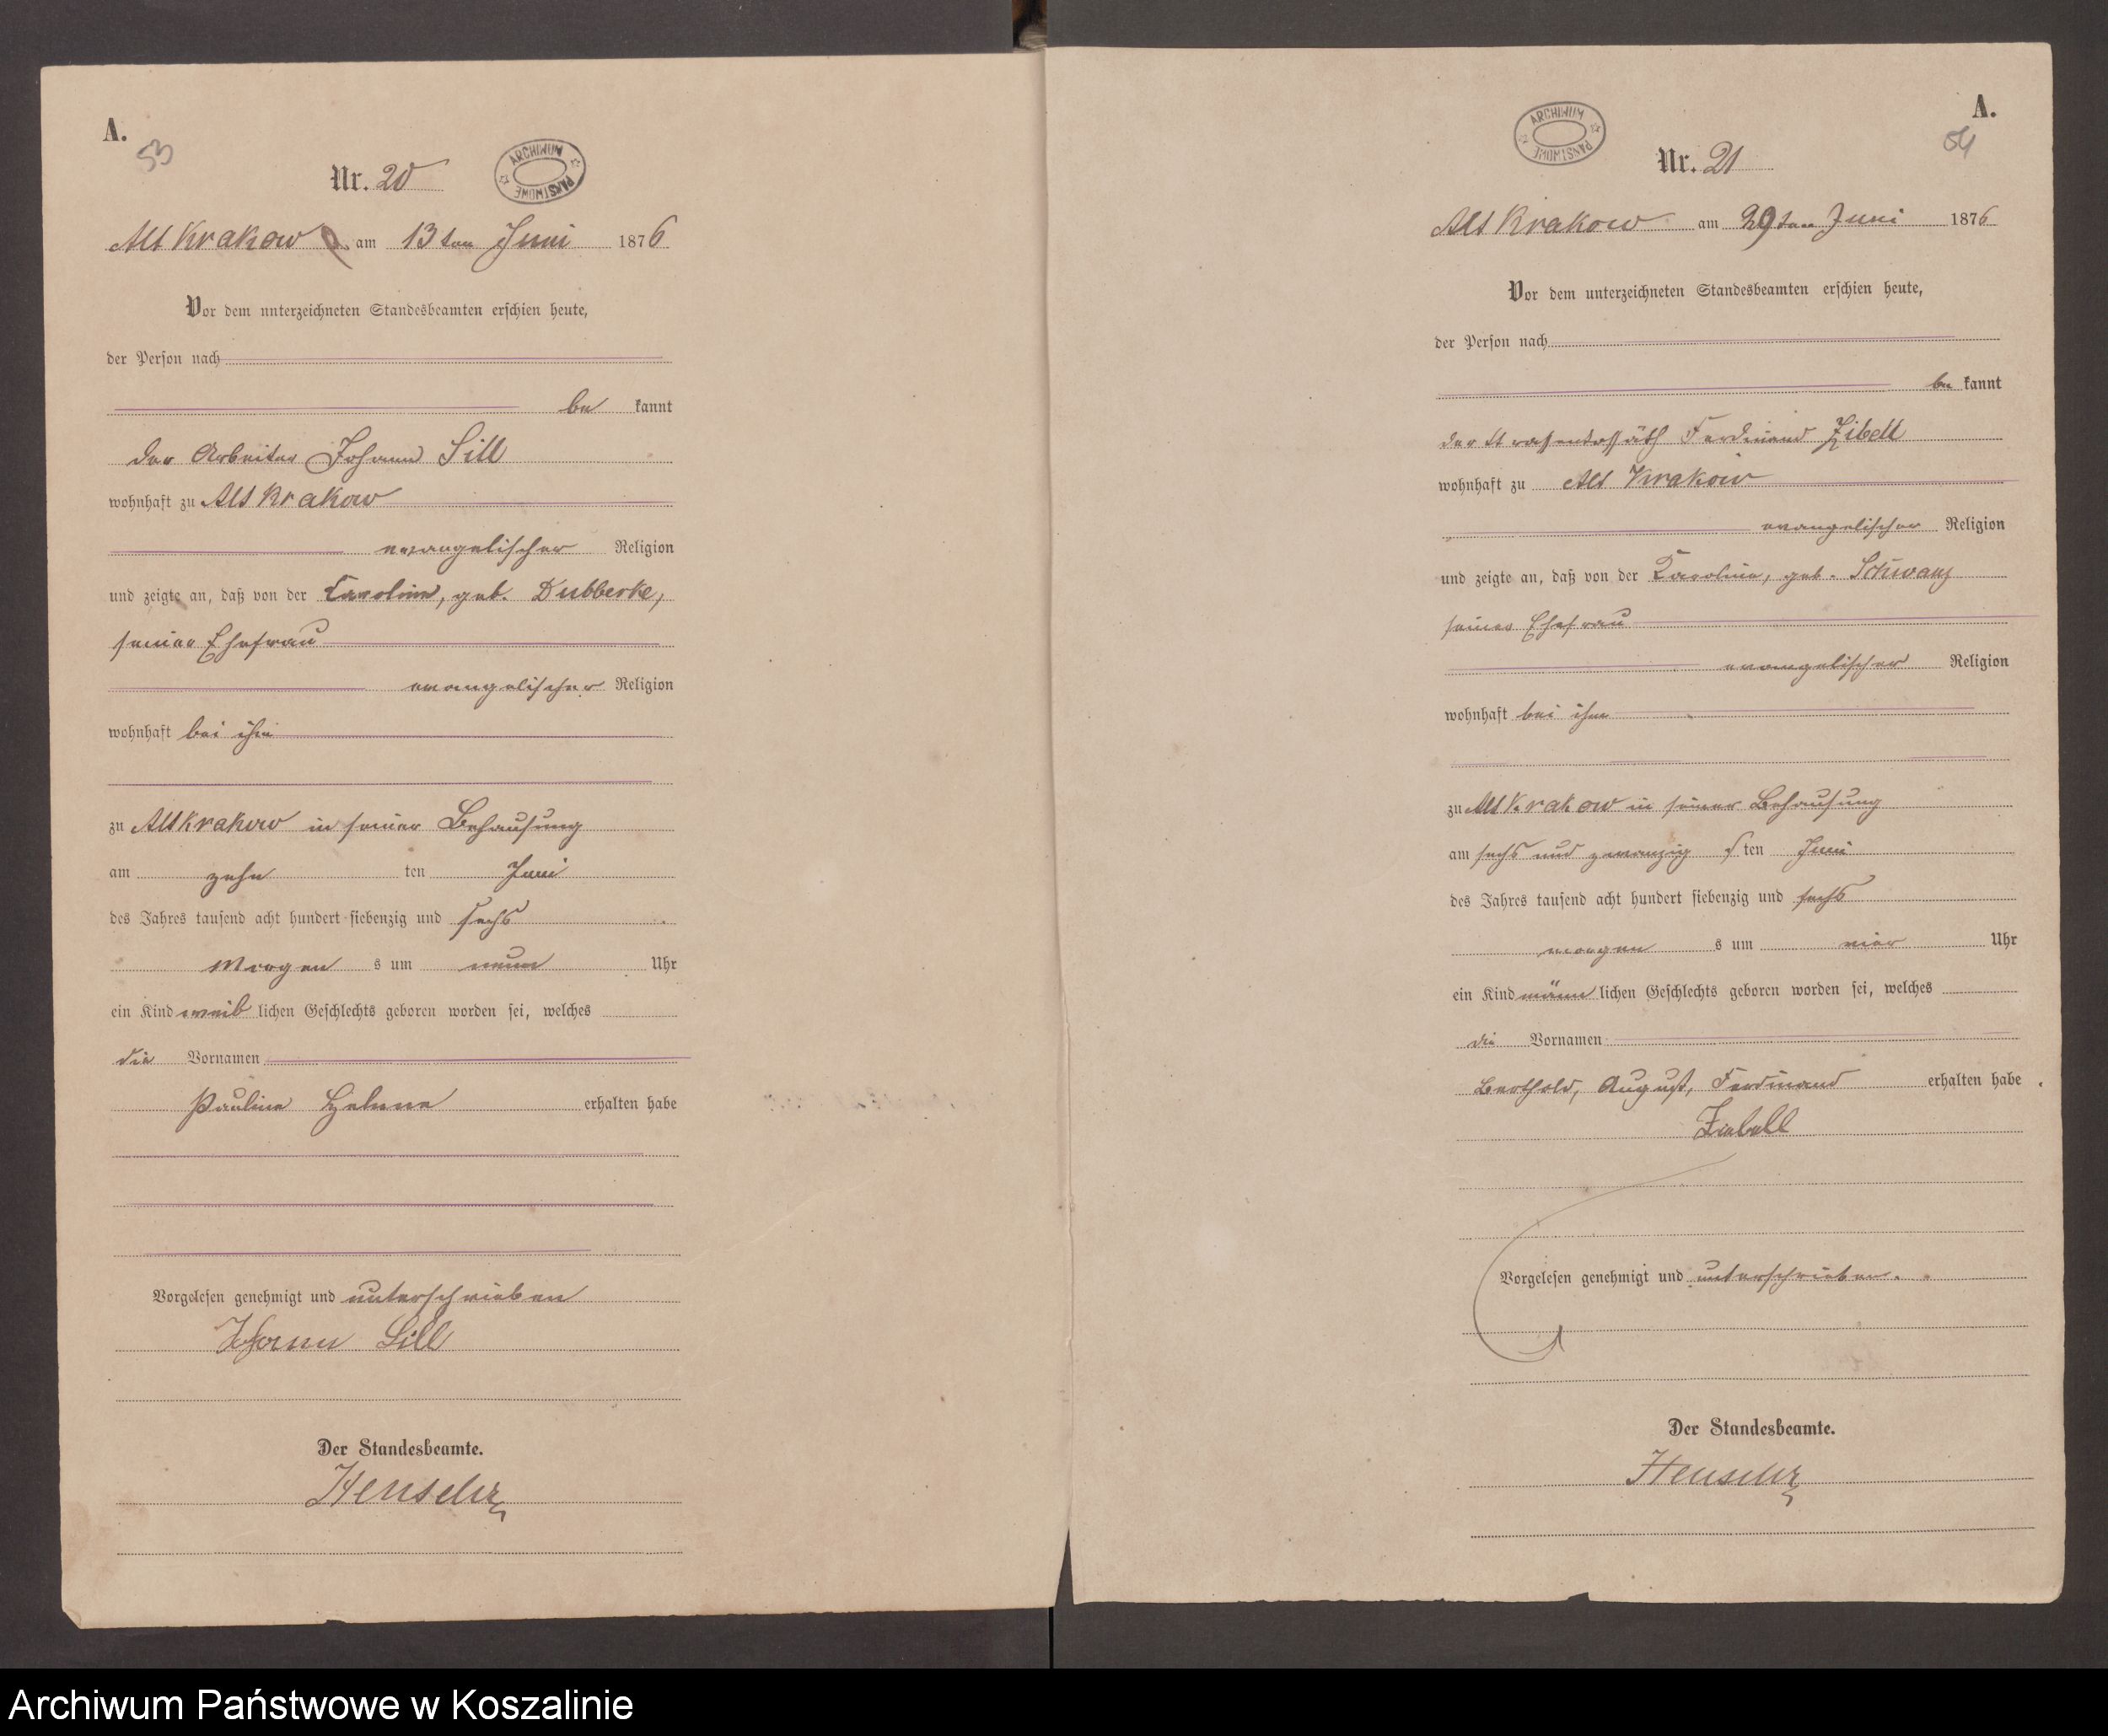 A.
53
Nr. 20
ARCHIWUM PAŃSTWOWE
Alt Krakow am 13ten Juni 1876
Vor dem unterzeichneten Standesbeamten erschien heute,
der Person nach
be kannt
der Arbeiter Johann Sill
wohnhaft zu Alt Krakow
evangelischer Religion
und zeigte an, daß von der Caroline, geb. Dubberke,
seiner Ehefrau
evangelischer Religion
wohnhaft bei ihm
zu Alt Krakow in seiner Behausung
am zehn ten Juni
des Jahres tausend acht hundert siebenzig und sechs
Morgen s um neun Uhr
ein Kind weib lichen Geschlechts geboren worden sei, welches
die Vornamen
Pauline Helene erhalten habe
Vorgelesen genehmigt und unterschrieben
Johann Sill
Der Standesbeamte.
A.
54
ARCHIWUM PAŃSTWOWE
Nr. 21
Alt Krakow am 29ten Juni 1876
Vor dem unterzeichneten Standesbeamten erschien heute,
der Person nach
be kannt
der Ferdinand Zibell
wohnhaft zu Alt Krakow
evangelischer Religion
und zeigte an, daß von der Caroline, geb. Schwanz
seiner Ehefrau
evangelischer Religion
wohnhaft bei ihm
zu Alt Krakow in seiner Behausung
am sechs und zwanzig s ten Juni
des Jahres tausend acht hundert siebenzig und sechs
morgen s um vier Uhr
ein Kind männ lichen Geschlechts geboren worden sei, welches
die Vornamen
Berthold, August, Ferdinand erhalten habe.
Ziebell
Vorgelesen genehmigt und unterschrieben.
Der Standesbeamte.
Archiwum Państwowe w Koszalinie